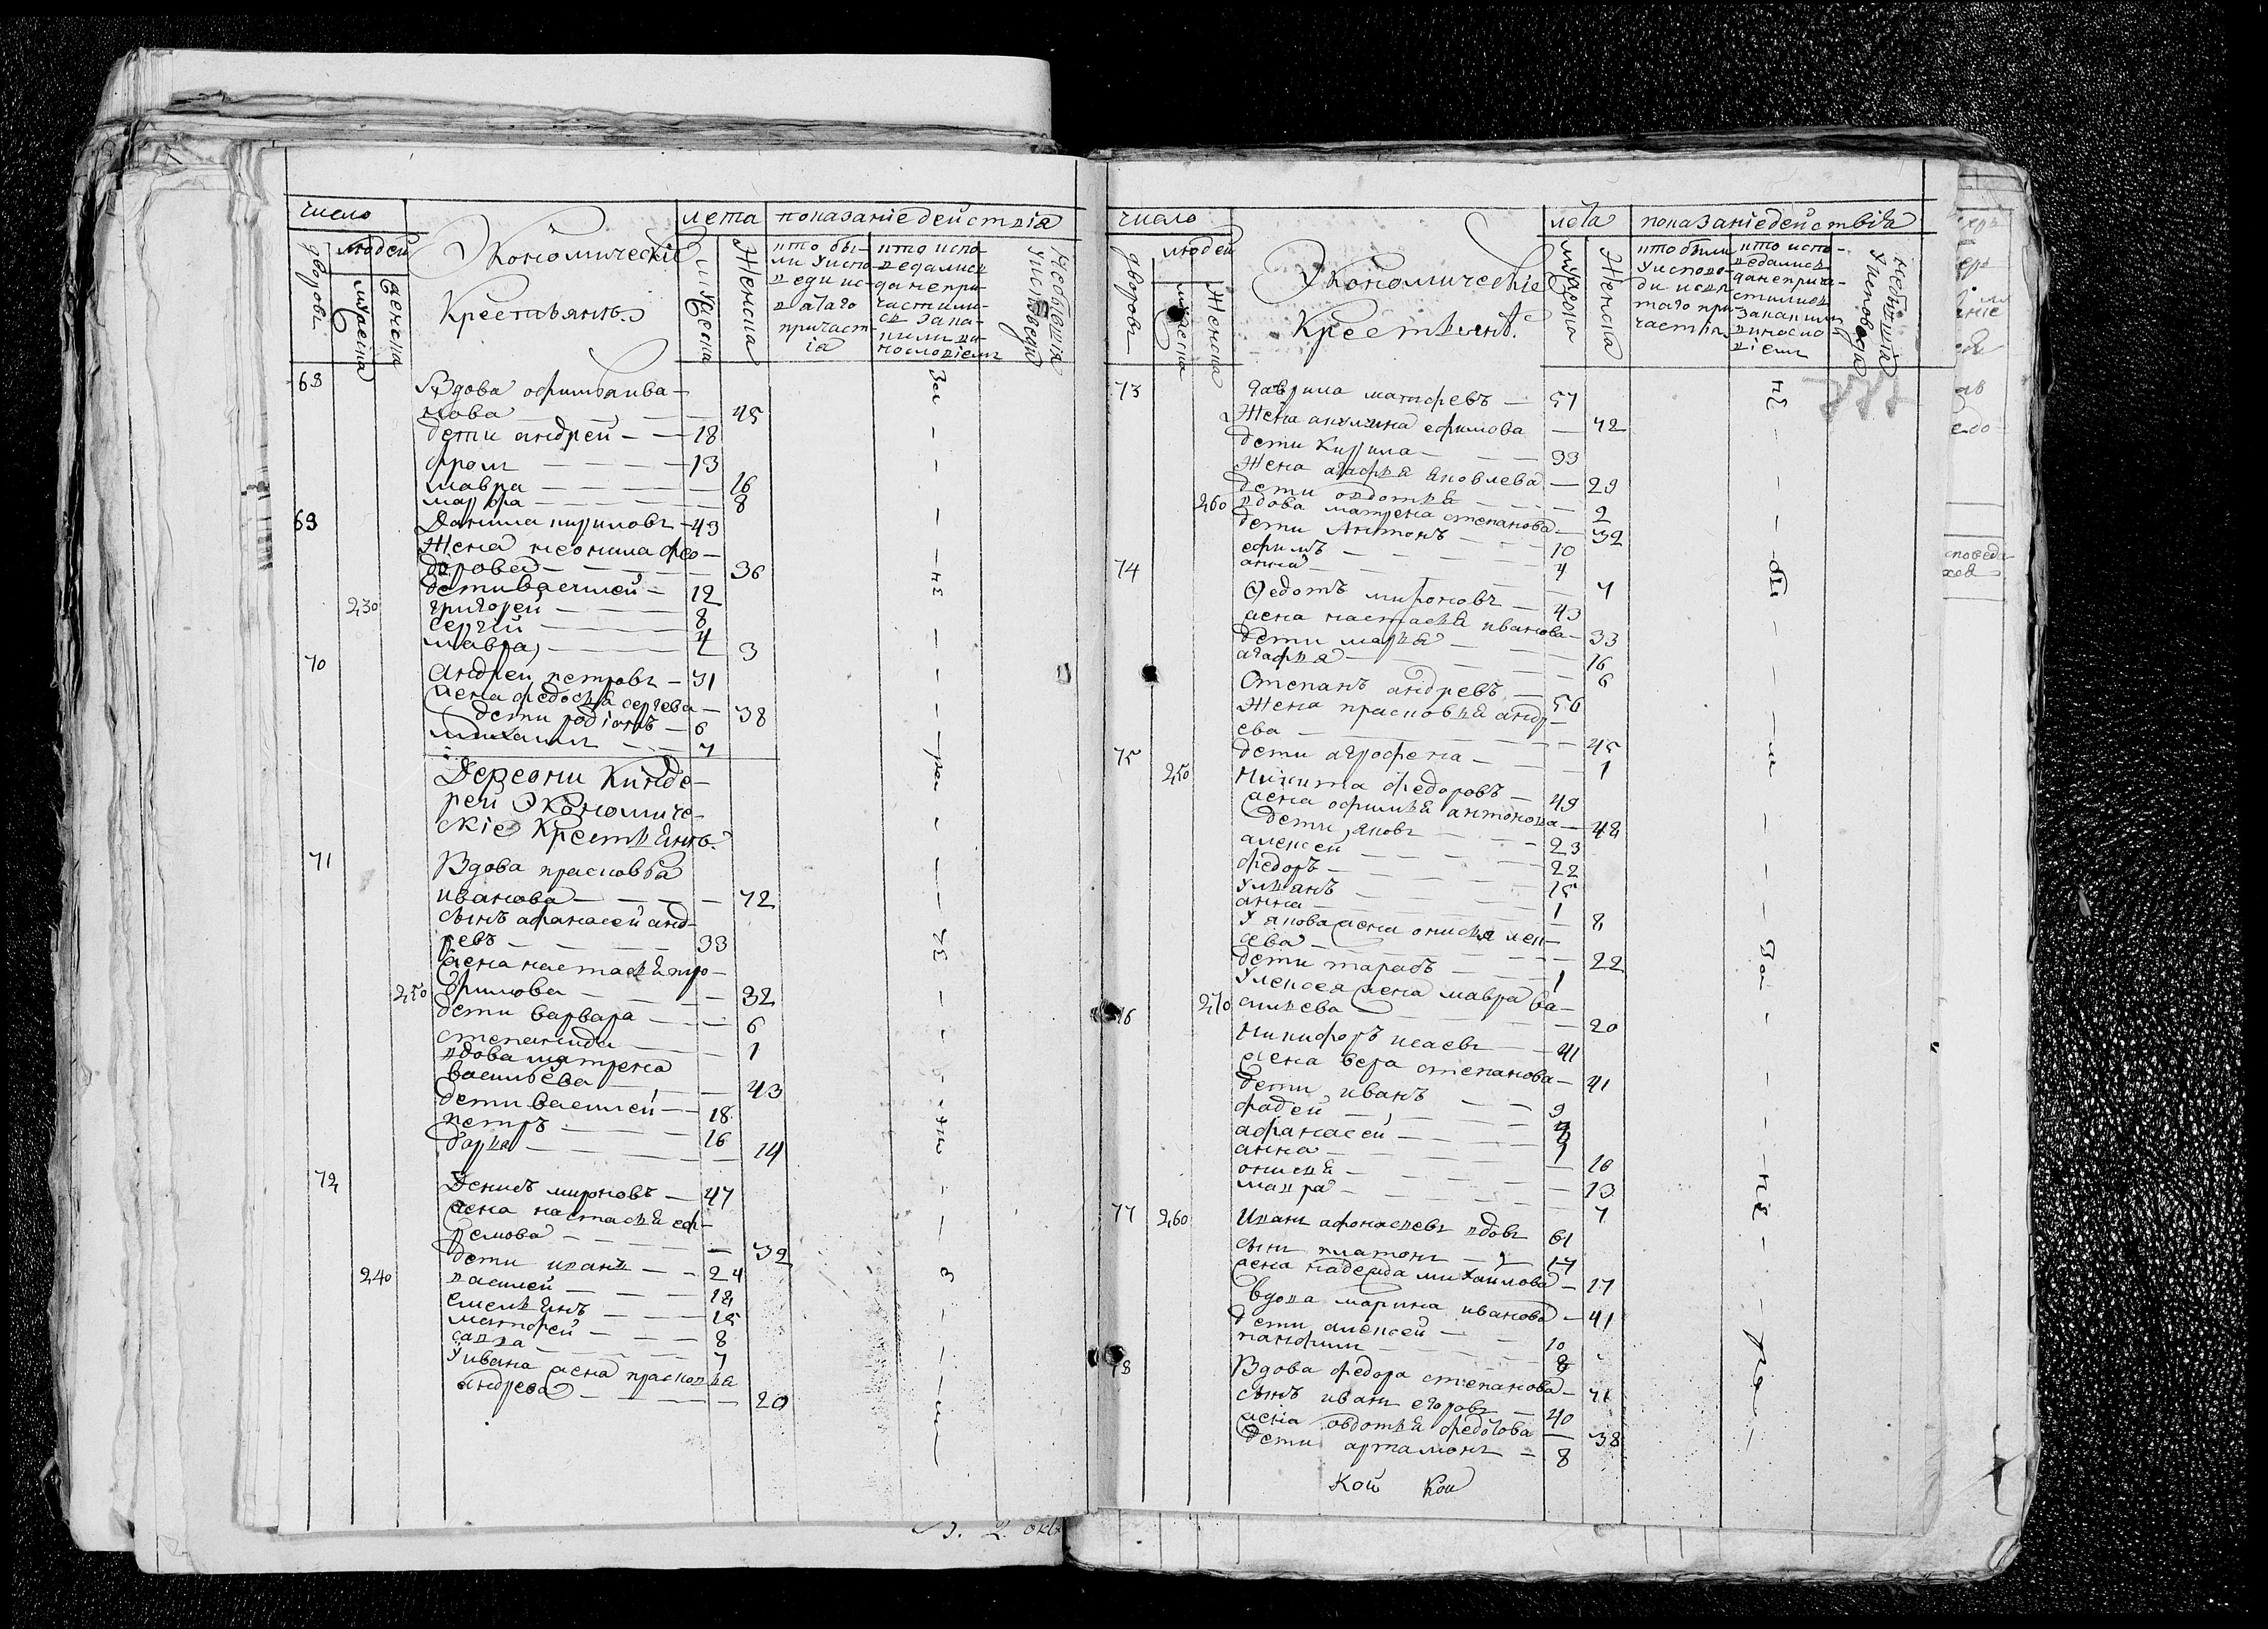 число
лета показаніе действія
дворовъ
людей
мужеска
женска
Экономическіе
Крестьянъ.
мужеска
Женска
кто бы-
ли у испо-
веди и с-
вятаго
причаст-
ія
кто испо-
ведался
да не при-
частили-
ся за ка-
кимъ ви-
нословіемъ
Небывшія
у исповеди
68 Вдова офимья ива-
нова — 45
дети андрей — 18
фролъ — 13
мавра — 16
марфа — 8
69 Данила кириловъ — 43
Жена неонила фео-
дорова — 36
дети василей — 12
230 григорей — 8
сергiй — 4
мавра — 3
70 Андрей петровъ — 31
жена федосья сергева — 38
дети родіонъ — 6
михаилъ — 4
Деревни Кинде-
рей Экономиче-
скіе Крестьянъ.
71 Вдова прасковья
иванова — 72
сынъ афанасей анд-
ревъ — 33
жена настасья тро-
250 фимова — 32
дети варвара — 6
степанида — 1
вдова матрена
васильева — 43
дети василей — 18
петръ — 16
дарья — 14
72 Денисъ мироновъ — 47
жена настасья еф-
ремова — 32
дети иванъ — 24
240 василей — 18
емельянъ — 15
матфей — 8
савва — 7
у ивана жена прасковья
андрева — 20
число
лета показаніе действія
дворовъ
людей
мужеска
Женска
Экономическіе
Крестьянъ.
мужеска
Женска
кто были
у испове-
ди и свя-
таго при-
частія
кто испо-
ведался
да не прича-
стился
за какимъ
виносло-
віемъ
небывшія
у исповеди
73 Гаврила матфевъ — 57
Жена акулина ефимова — 42
дети Кирила — 33
Жена агафья яковлева — 29
дети овдотья — 2
260 вдова матрена степанова — 32
дети Антонъ — 10
ефимъ — 4
анна — 4
74 Федотъ мироновъ — 43
жена настасья иванова — 33
дети марья — 16
агафья — 6
Степанъ андревъ — 56
Жена прасковья андр-
ева — 45
75 дети агрофена — 1
250 Никита федоровъ — 49
жена офимья антонова — 48
дети яковъ — 23
алексей — 22
федоръ — 15
ульянъ — 1
анна — 8
у якова жена онисья лек-
сева — 22
дети тарасъ — 1
у лексея жена мавра ва-
270 сильева — 20
76 Никифоръ исаевъ — 41
жена вера степанова — 41
дети иванъ — 9
фадей
афанасей
анна — 16
онисья — 13
мавра — 7
77 260 Иванъ афонасьевъ вдовъ 61
сынъ платонъ — 17
жена надежда михаилова — 17
вдова марина иванова — 41
дети алексей — 10
панфилъ — 8
78 Вдова федора степанова — 71
сынъ иванъ егоровъ — 40
жена овдотья федотова — 38
дети артамонъ — 8
Кой Кои